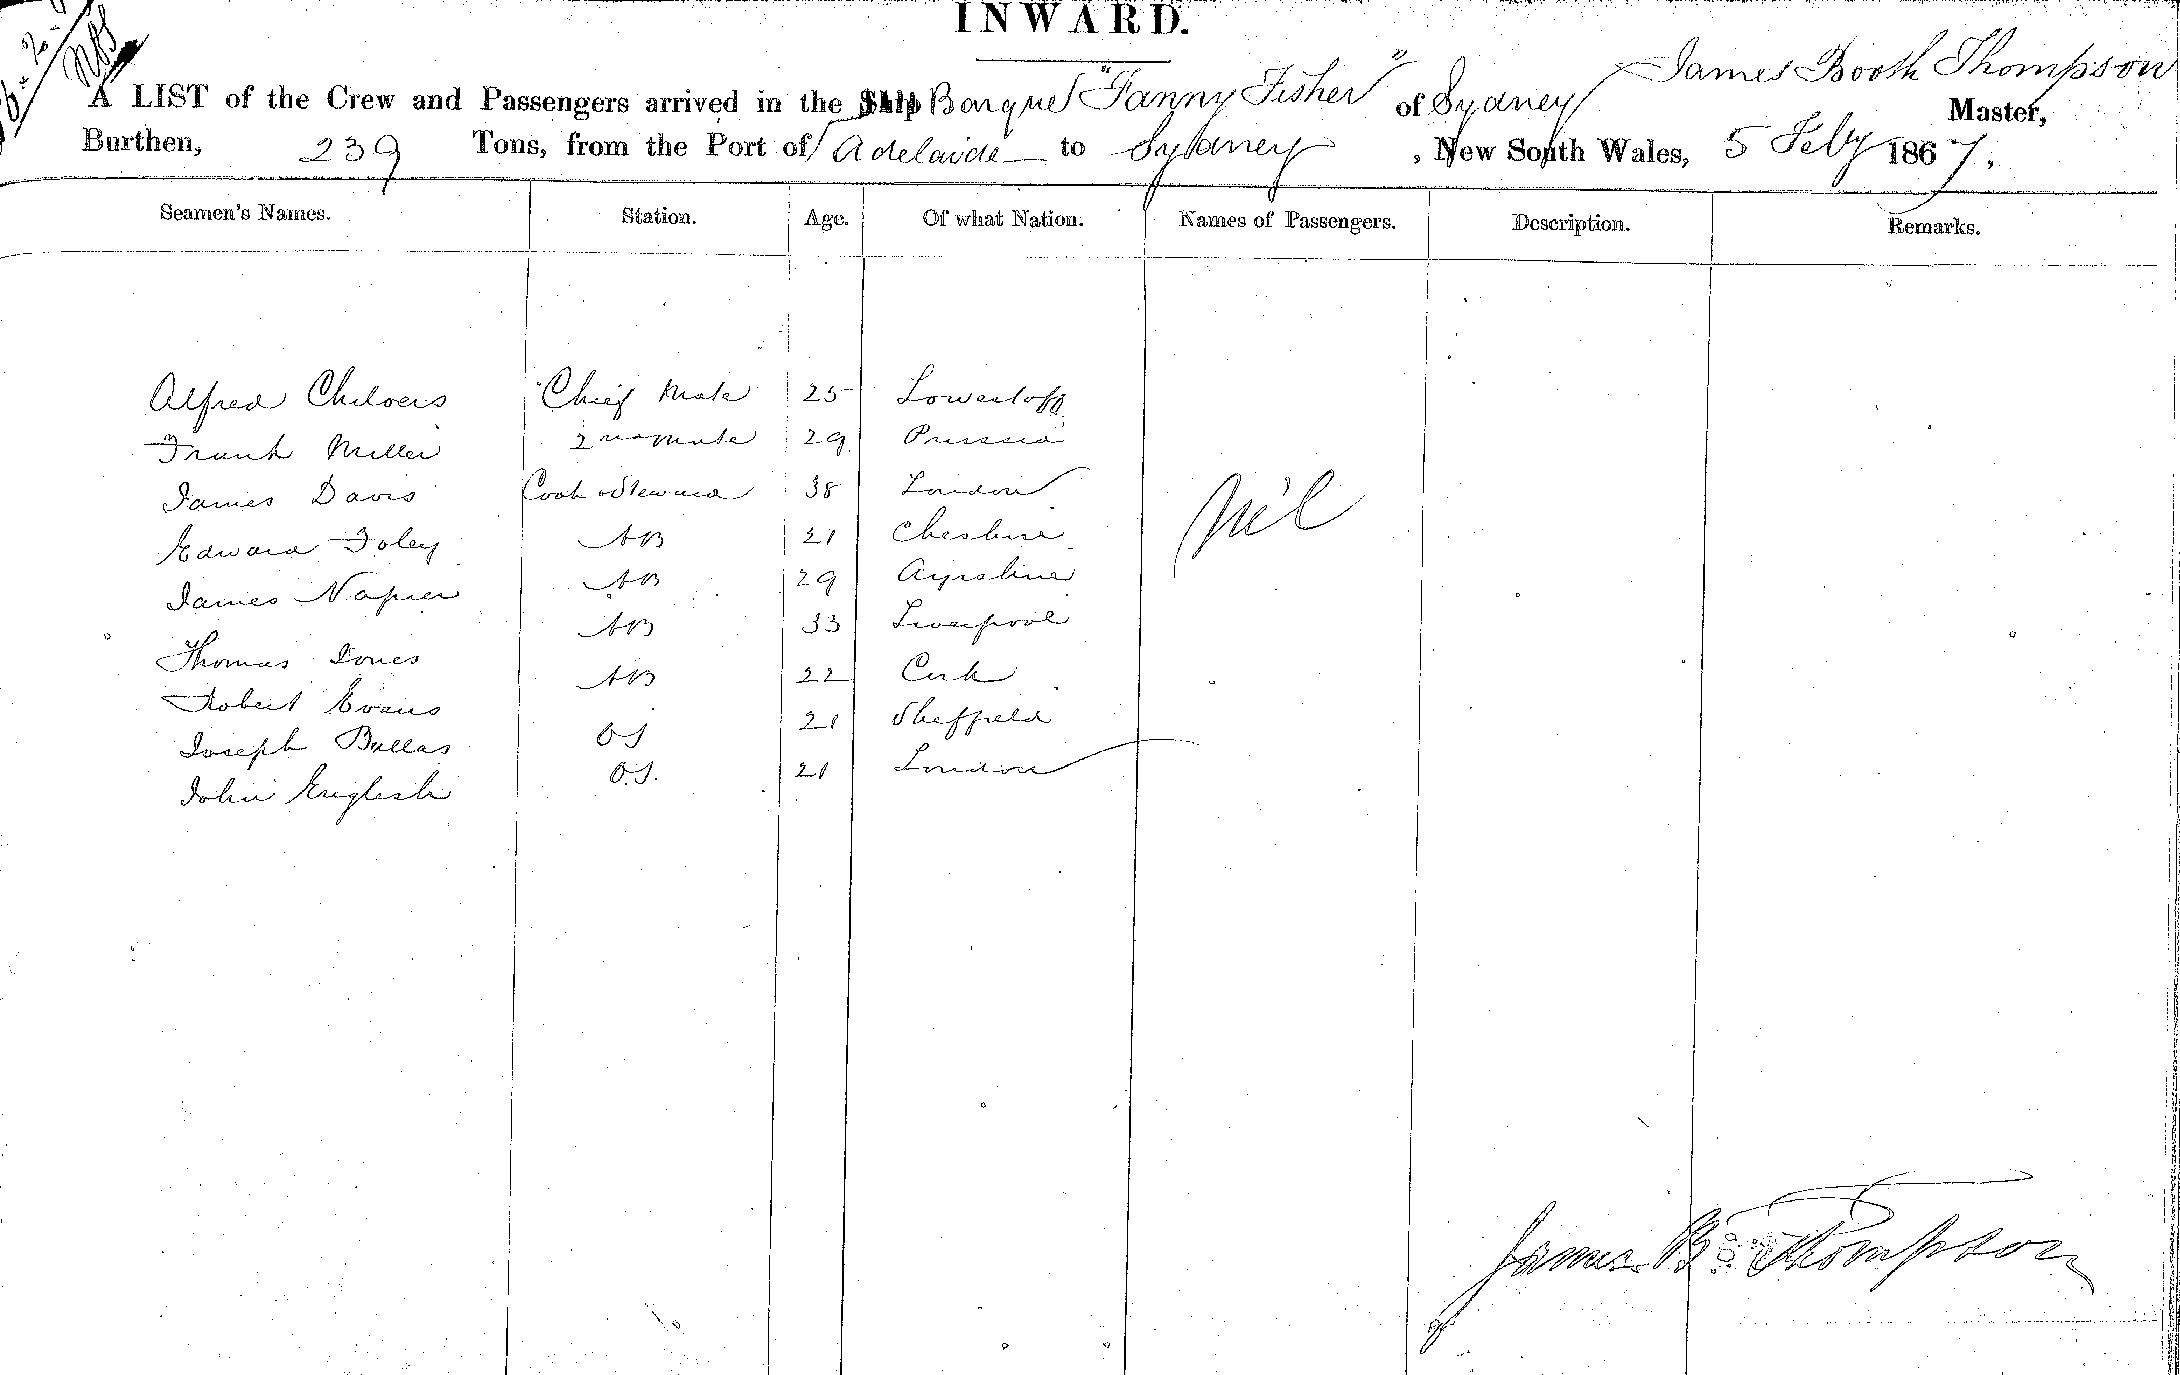 INWARD.
James Booth Thompson
A LIST of the Crew and Passengers arrived in the Ship Barque "Fanny Fisher" of Sydney Master,
Burthen, 239 Tons, from the Port of Adelaide to Sydney, New South Wales, 5 Feby 1867.
Seamen's Names. Station. Age. Of what Nation. Names of Passengers. Description. Remarks.
Alfred Chilvers Chief Mate 25 Lowestoff
Frank Miller 2nd Mate 29 Prussia
James Davis Cook & Steward 38 London
Edward Foley AB 21 Cheshire
Nil
James Napier AB 29 Ayrshire
Thomas Jones AB 33 Liverpool
Robert Evans AB 22 Cork
Joseph Bullas OS 21 Sheffield
John English O.S. 21 London
James B. Thompson